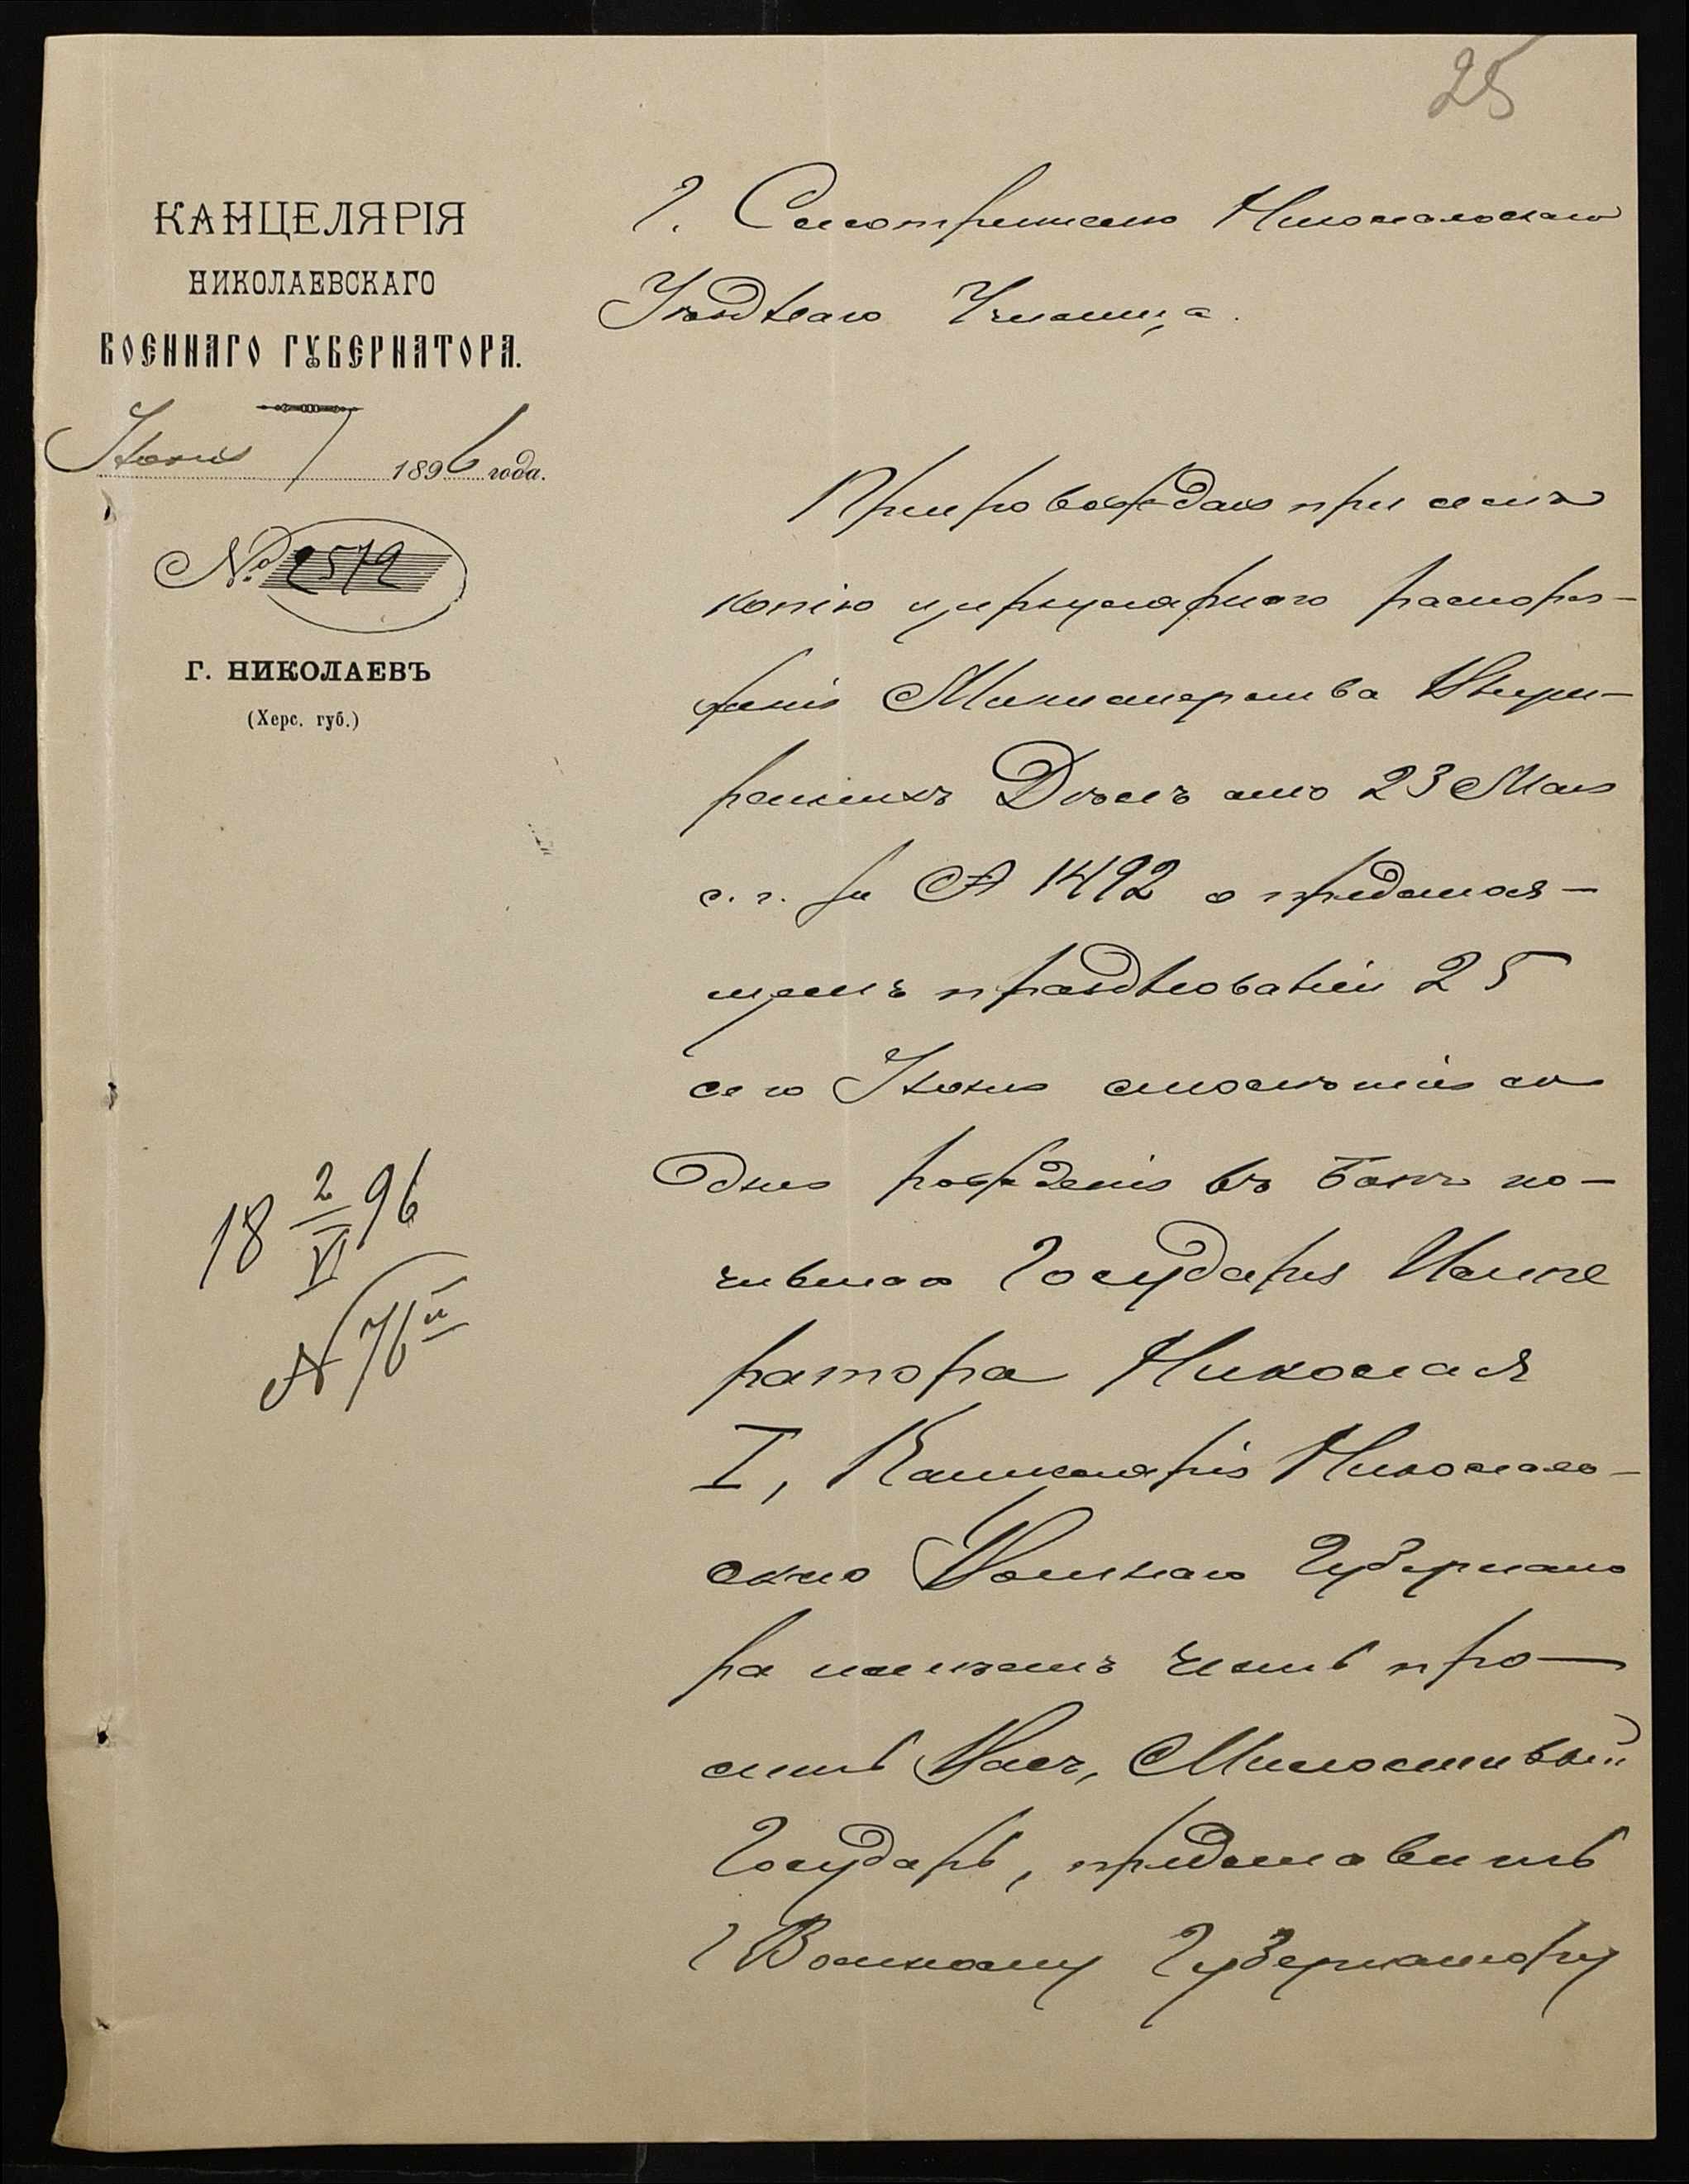 25
КАНЦЕЛЯРІЯ
НИКОЛАЕВСКАГО
ВОЕННАГО ГУБЕРНАТОРА.
Іюня 7 1896 года.
№ 2572
Г. НИКОЛАЕВЪ
(Херс. губ.)
18 2/VI 96
№ 76
Г. Смотрителю Николаевскаго
Уѣзднаго Училища.
Препровождая при семъ
копію циркулярнаго распоря-
женія Министерства Внут-
реннихъ Дѣлъ отъ 23 Мая
с. г. за № 1492 о предстоя-
щемъ празднованіи 25
сего Іюня столѣтія со
дня рожденія въ Бозѣ по-
чившаго Государя Импе
ратора Николая
I, Канцелярія Николаев-
скаго Военнаго Губернато
ра имѣетъ честь про-
сить Васъ, Милостивый
Государь, представить
Г Военному Губернатору